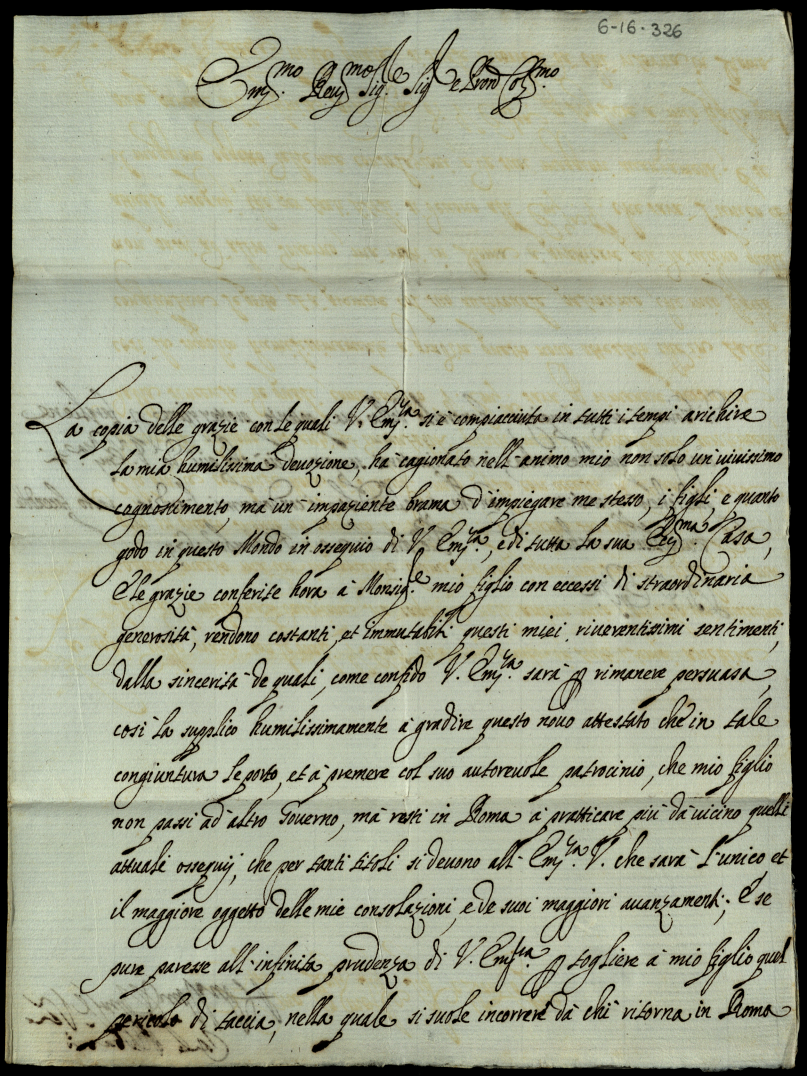 6-16-326
Em.mo Rev.mo Sig.re Sig.re e Pron Col.mo
La copia delle grazie con le quali V. Em.za si è compiacciuta in tutti i tempi arichire
la mia humilissima devozione, hà cagionato nell'animo mio non solo un vivissimo
cognoscimento, mà un' impaziente brama d'impiegare me stesso, i figli, e quanto
godo in questo Mondo in ossequio di V. Em.za, e di tutta la sua Ecc.ma Casa,
E le grazie conferite hora à Monsig.re mio figlio con eccessi di straordinaria
generosità, rendono costanti, et immutabili questi miei riverentissimi sentimenti,
dalla sincerità de quali, come confido V. Em.za sarà p rimanere persuasa,
così la supplico humilissimamente à gradire questo novo attestato che in tale
congiuntura le porto, et à premere col suo autorevole patrocinio, che mio figlio
non passi ad altro Governo, mà resti in Roma à pratticare più dà vicino quelli
attuali ossequij, che per tanti titoli si devono all' Em.za V. che sarà l'unico et
il maggiore oggetto delle mie consolazioni, e de suoi maggiori avanzamenti; E se
pure paresse all'infinita prudenza di V. Em.za p togliere à mio figlio quel
pericolo di taccia, nella quale si suole incorrere dà chi ritorna in Roma